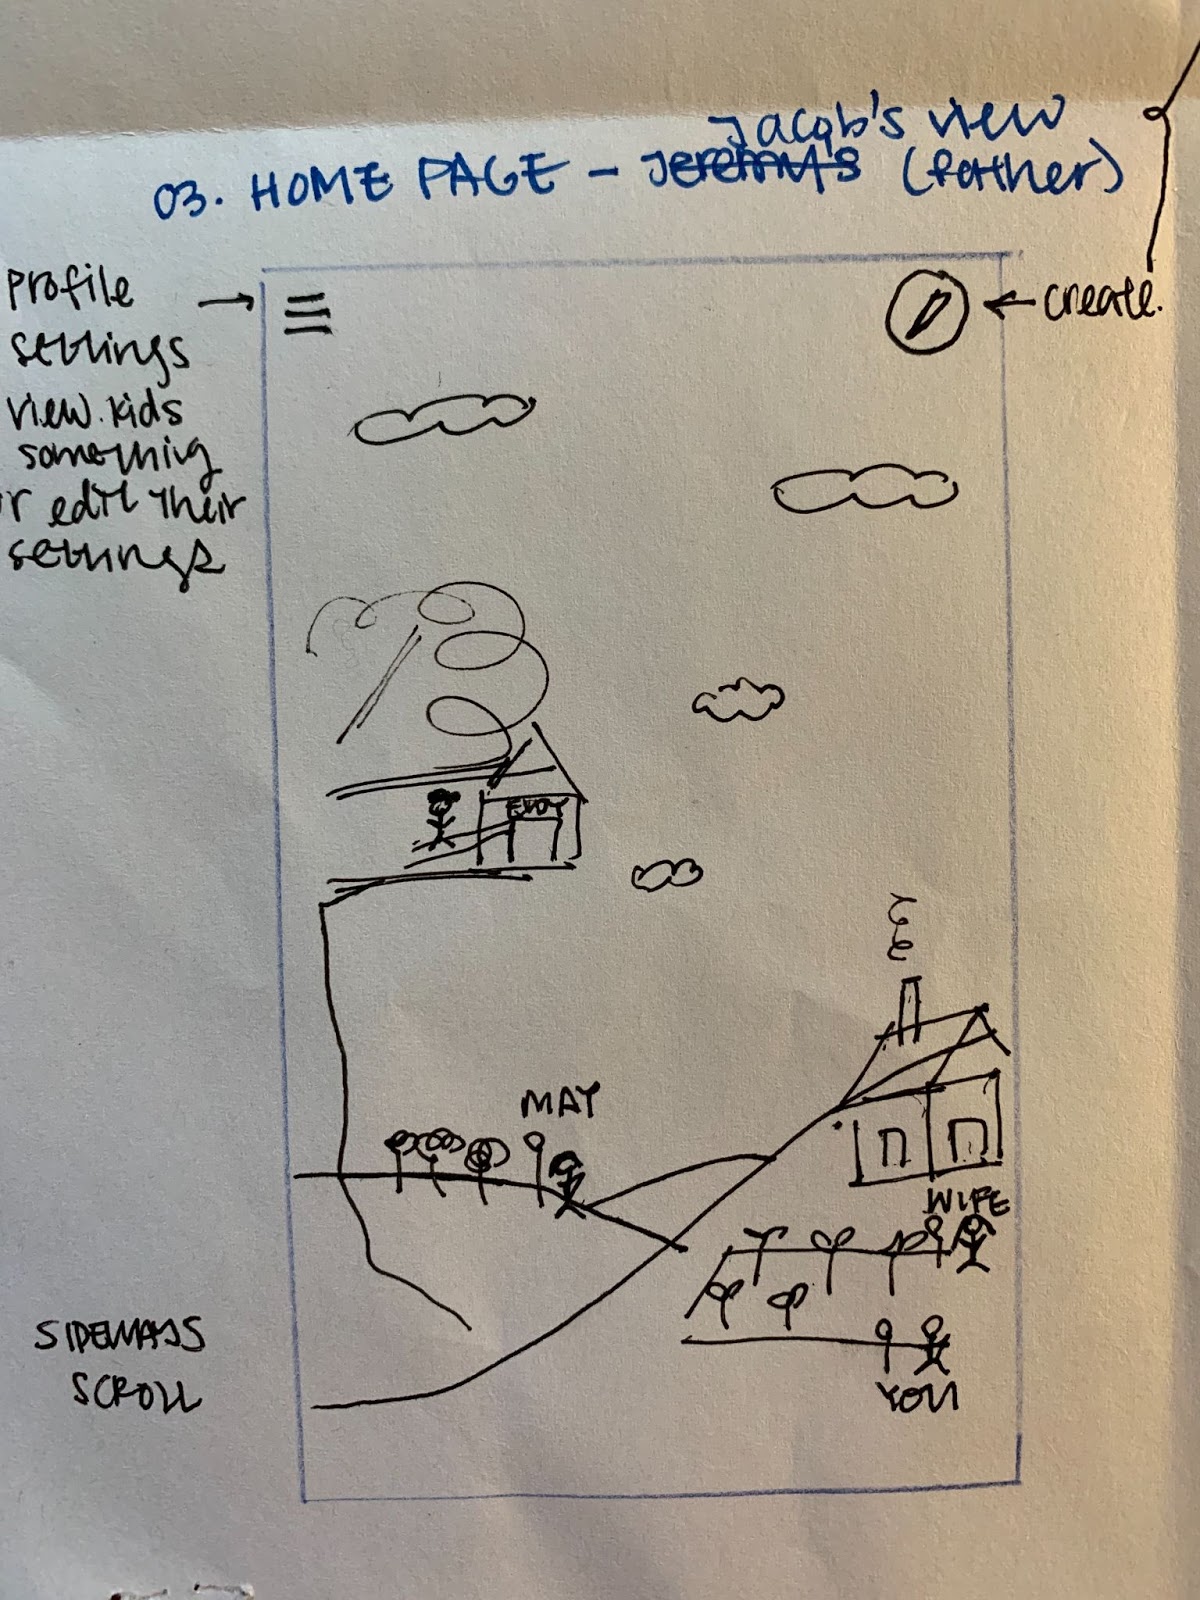 Jacob's view
03. HOME PAGE – Jeremy's (father)
profile
settings
view kids
something
or edit their
settings
create.
MAY
WIFE
YOU
SIDEWAYS
SCROLL